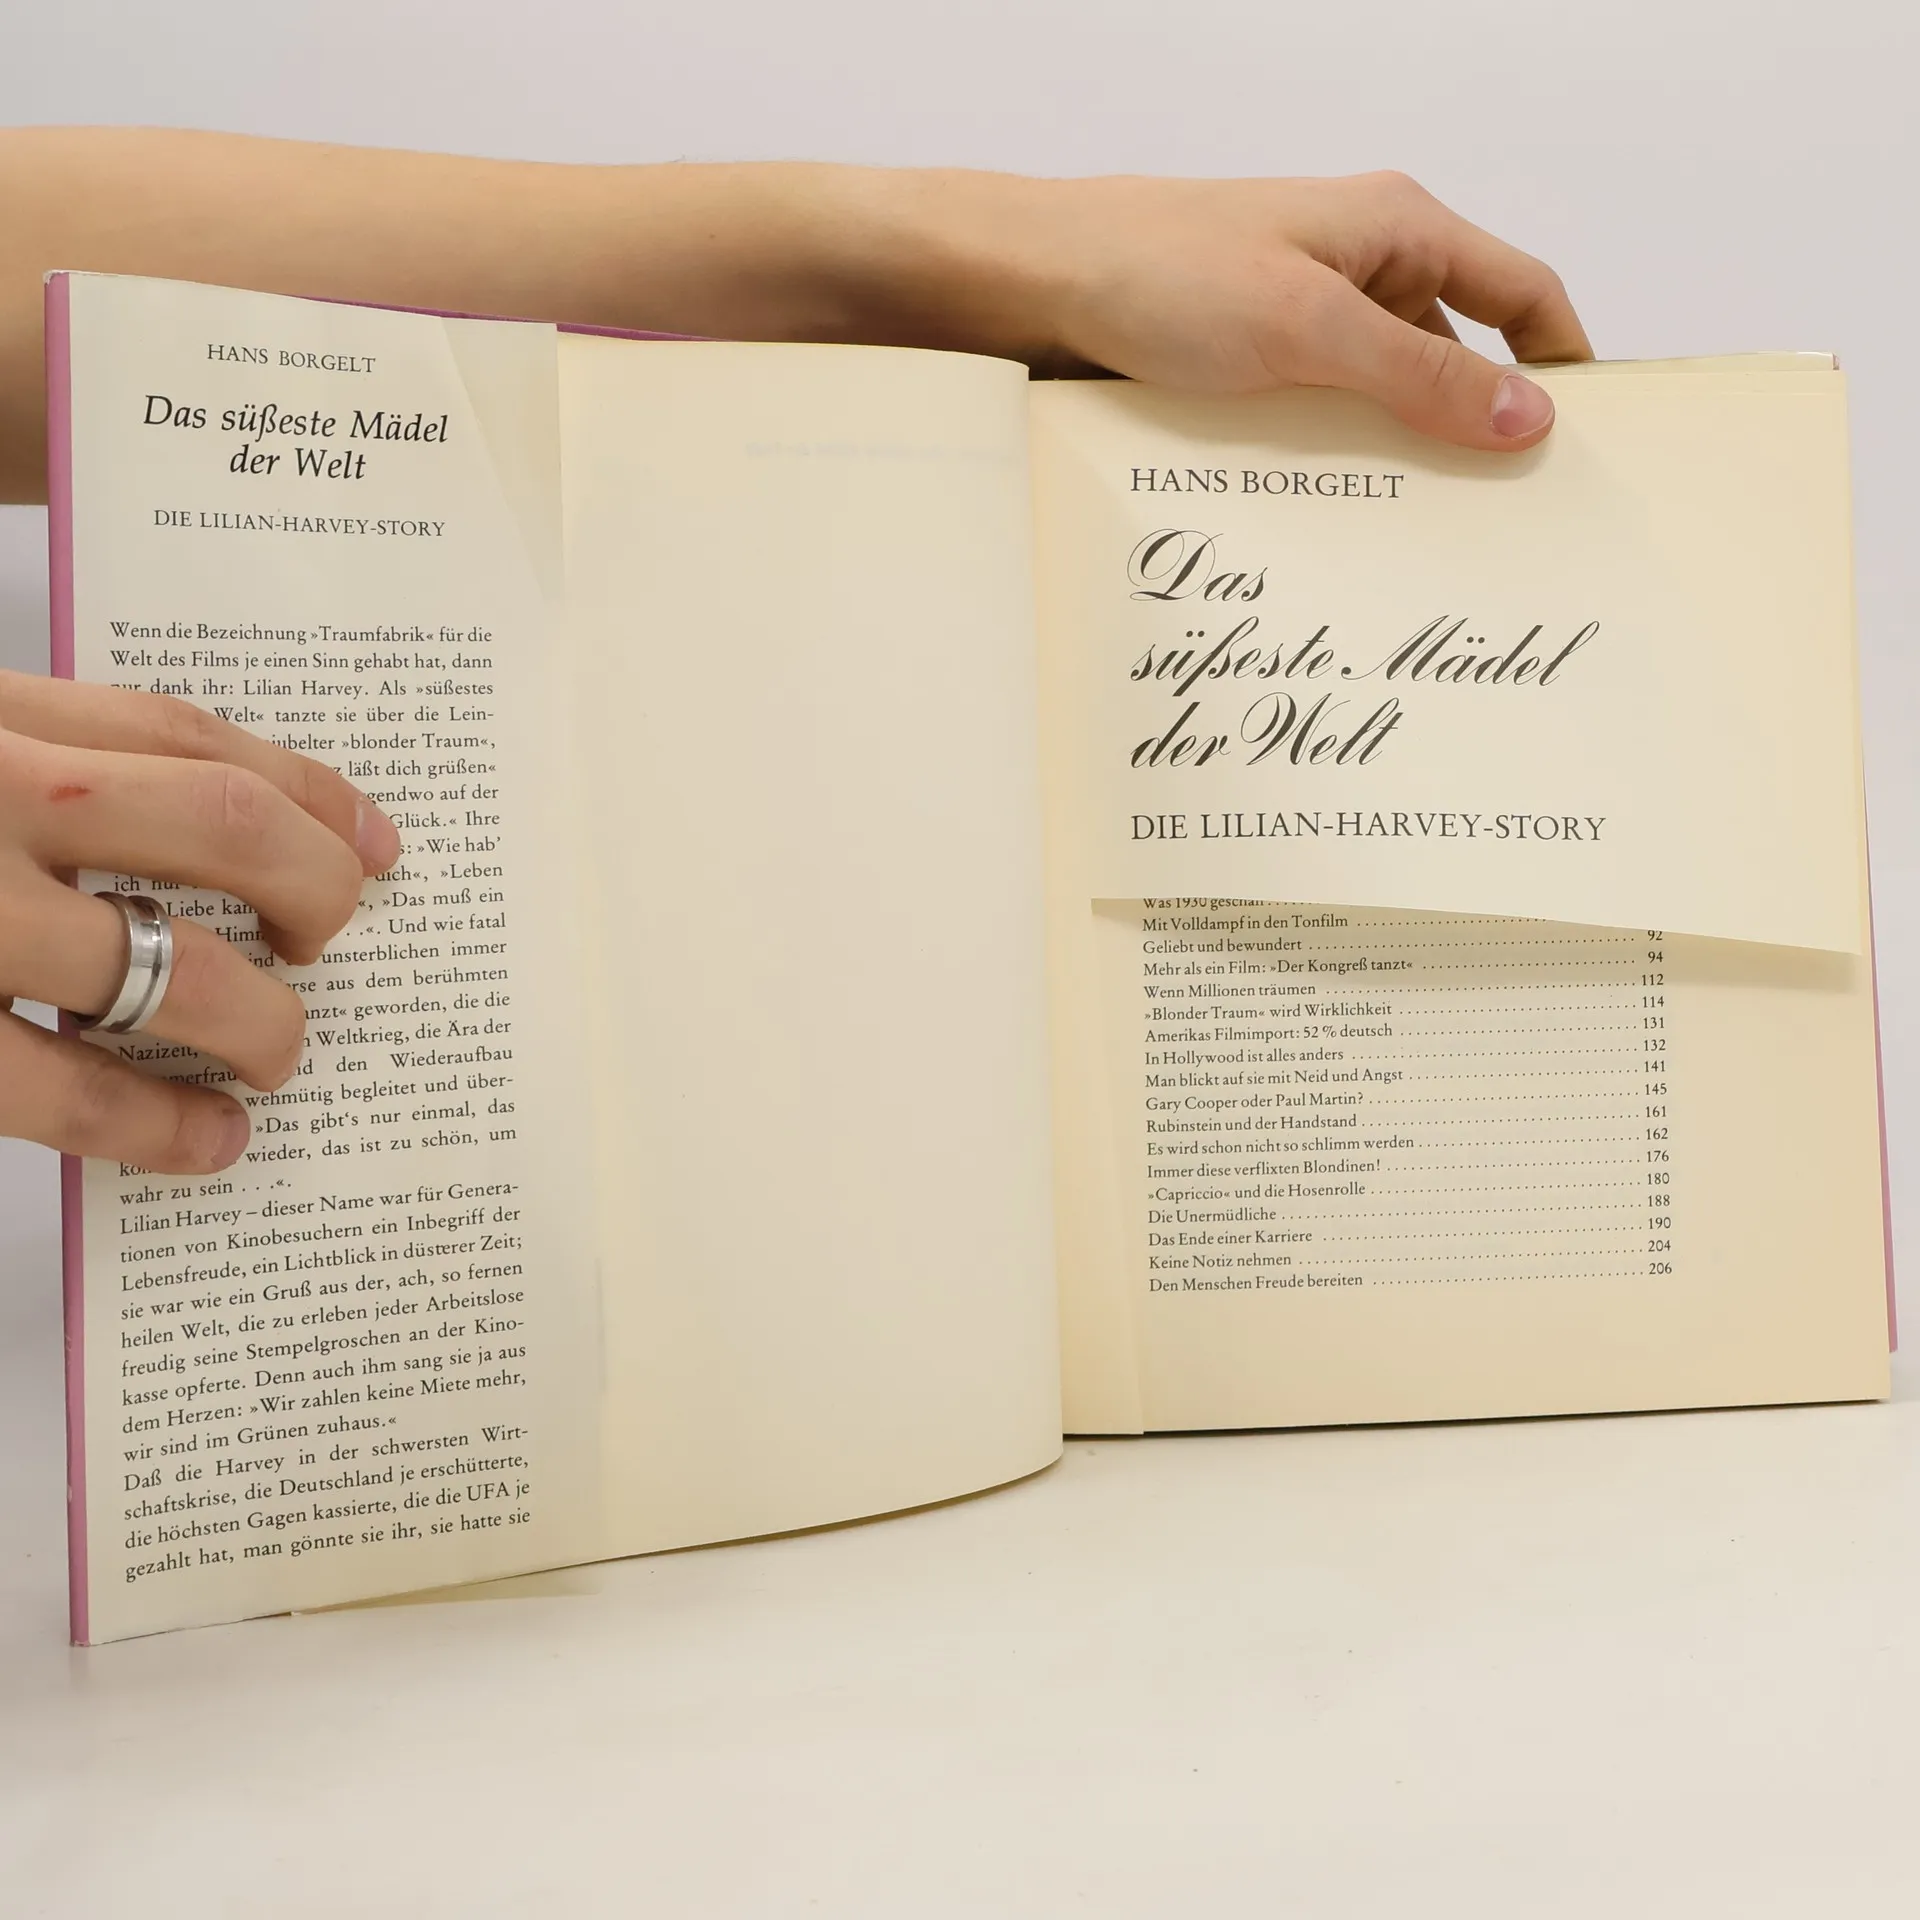 HANS BORGELT
Das süßeste Mädel
der Welt
DIE LILIAN-HARVEY-STORY
Wenn die Bezeichnung »Traumfabrik« für die
Welt des Films je einen Sinn gehabt hat, dann
nur dank ihr: Lilian Harvey. Als »süßestes
Welt« tanzte sie über die Lein-
»blonder Traum«,
läßt dich grüßen«
auf der
Glück.« Ihre
»Wie hab'
ich nur dich«, »Leben
Liebe »Das muß ein
. .«. Und wie fatal
unsterblichen immer
aus dem berühmten
geworden, die die
Weltkrieg, die Ära der
Nazizeit, den Wiederaufbau
wehmütig begleitet und über-
»Das gibt's nur einmal, das
wieder, das ist zu schön, um
wahr zu sein . . .«.
Lilian Harvey – dieser Name war für Genera-
tionen von Kinobesuchern ein Inbegriff der
Lebensfreude, ein Lichtblick in düsterer Zeit;
sie war wie ein Gruß aus der, ach, so fernen
heilen Welt, die zu erleben jeder Arbeitslose
freudig seine Stempelgroschen an der Kino-
kasse opferte. Denn auch ihm sang sie ja aus
dem Herzen: »Wir zahlen keine Miete mehr,
wir sind im Grünen zuhaus.«
Daß die Harvey in der schwersten Wirt-
schaftskrise, die Deutschland je erschütterte,
die höchsten Gagen kassierte, die die UFA je
gezahlt hat, man gönnte sie ihr, sie hatte sie
HANS BORGELT
Das
süßeste Mädel
der Welt
DIE LILIAN-HARVEY-STORY
Was 1930 geschah
Mit Volldampf in den Tonfilm
Geliebt und bewundert 92
Mehr als ein Film: »Der Kongreß tanzt« 94
Wenn Millionen träumen 112
»Blonder Traum« wird Wirklichkeit 114
Amerikas Filmimport: 52 % deutsch 131
In Hollywood ist alles anders 132
Man blickt auf sie mit Neid und Angst 141
Gary Cooper oder Paul Martin? 145
Rubinstein und der Handstand 161
Es wird schon nicht so schlimm werden 162
Immer diese verflixten Blondinen! 176
»Capriccio« und die Hosenrolle 180
Die Unermüdliche 188
Das Ende einer Karriere 190
Keine Notiz nehmen 204
Den Menschen Freude bereiten 206